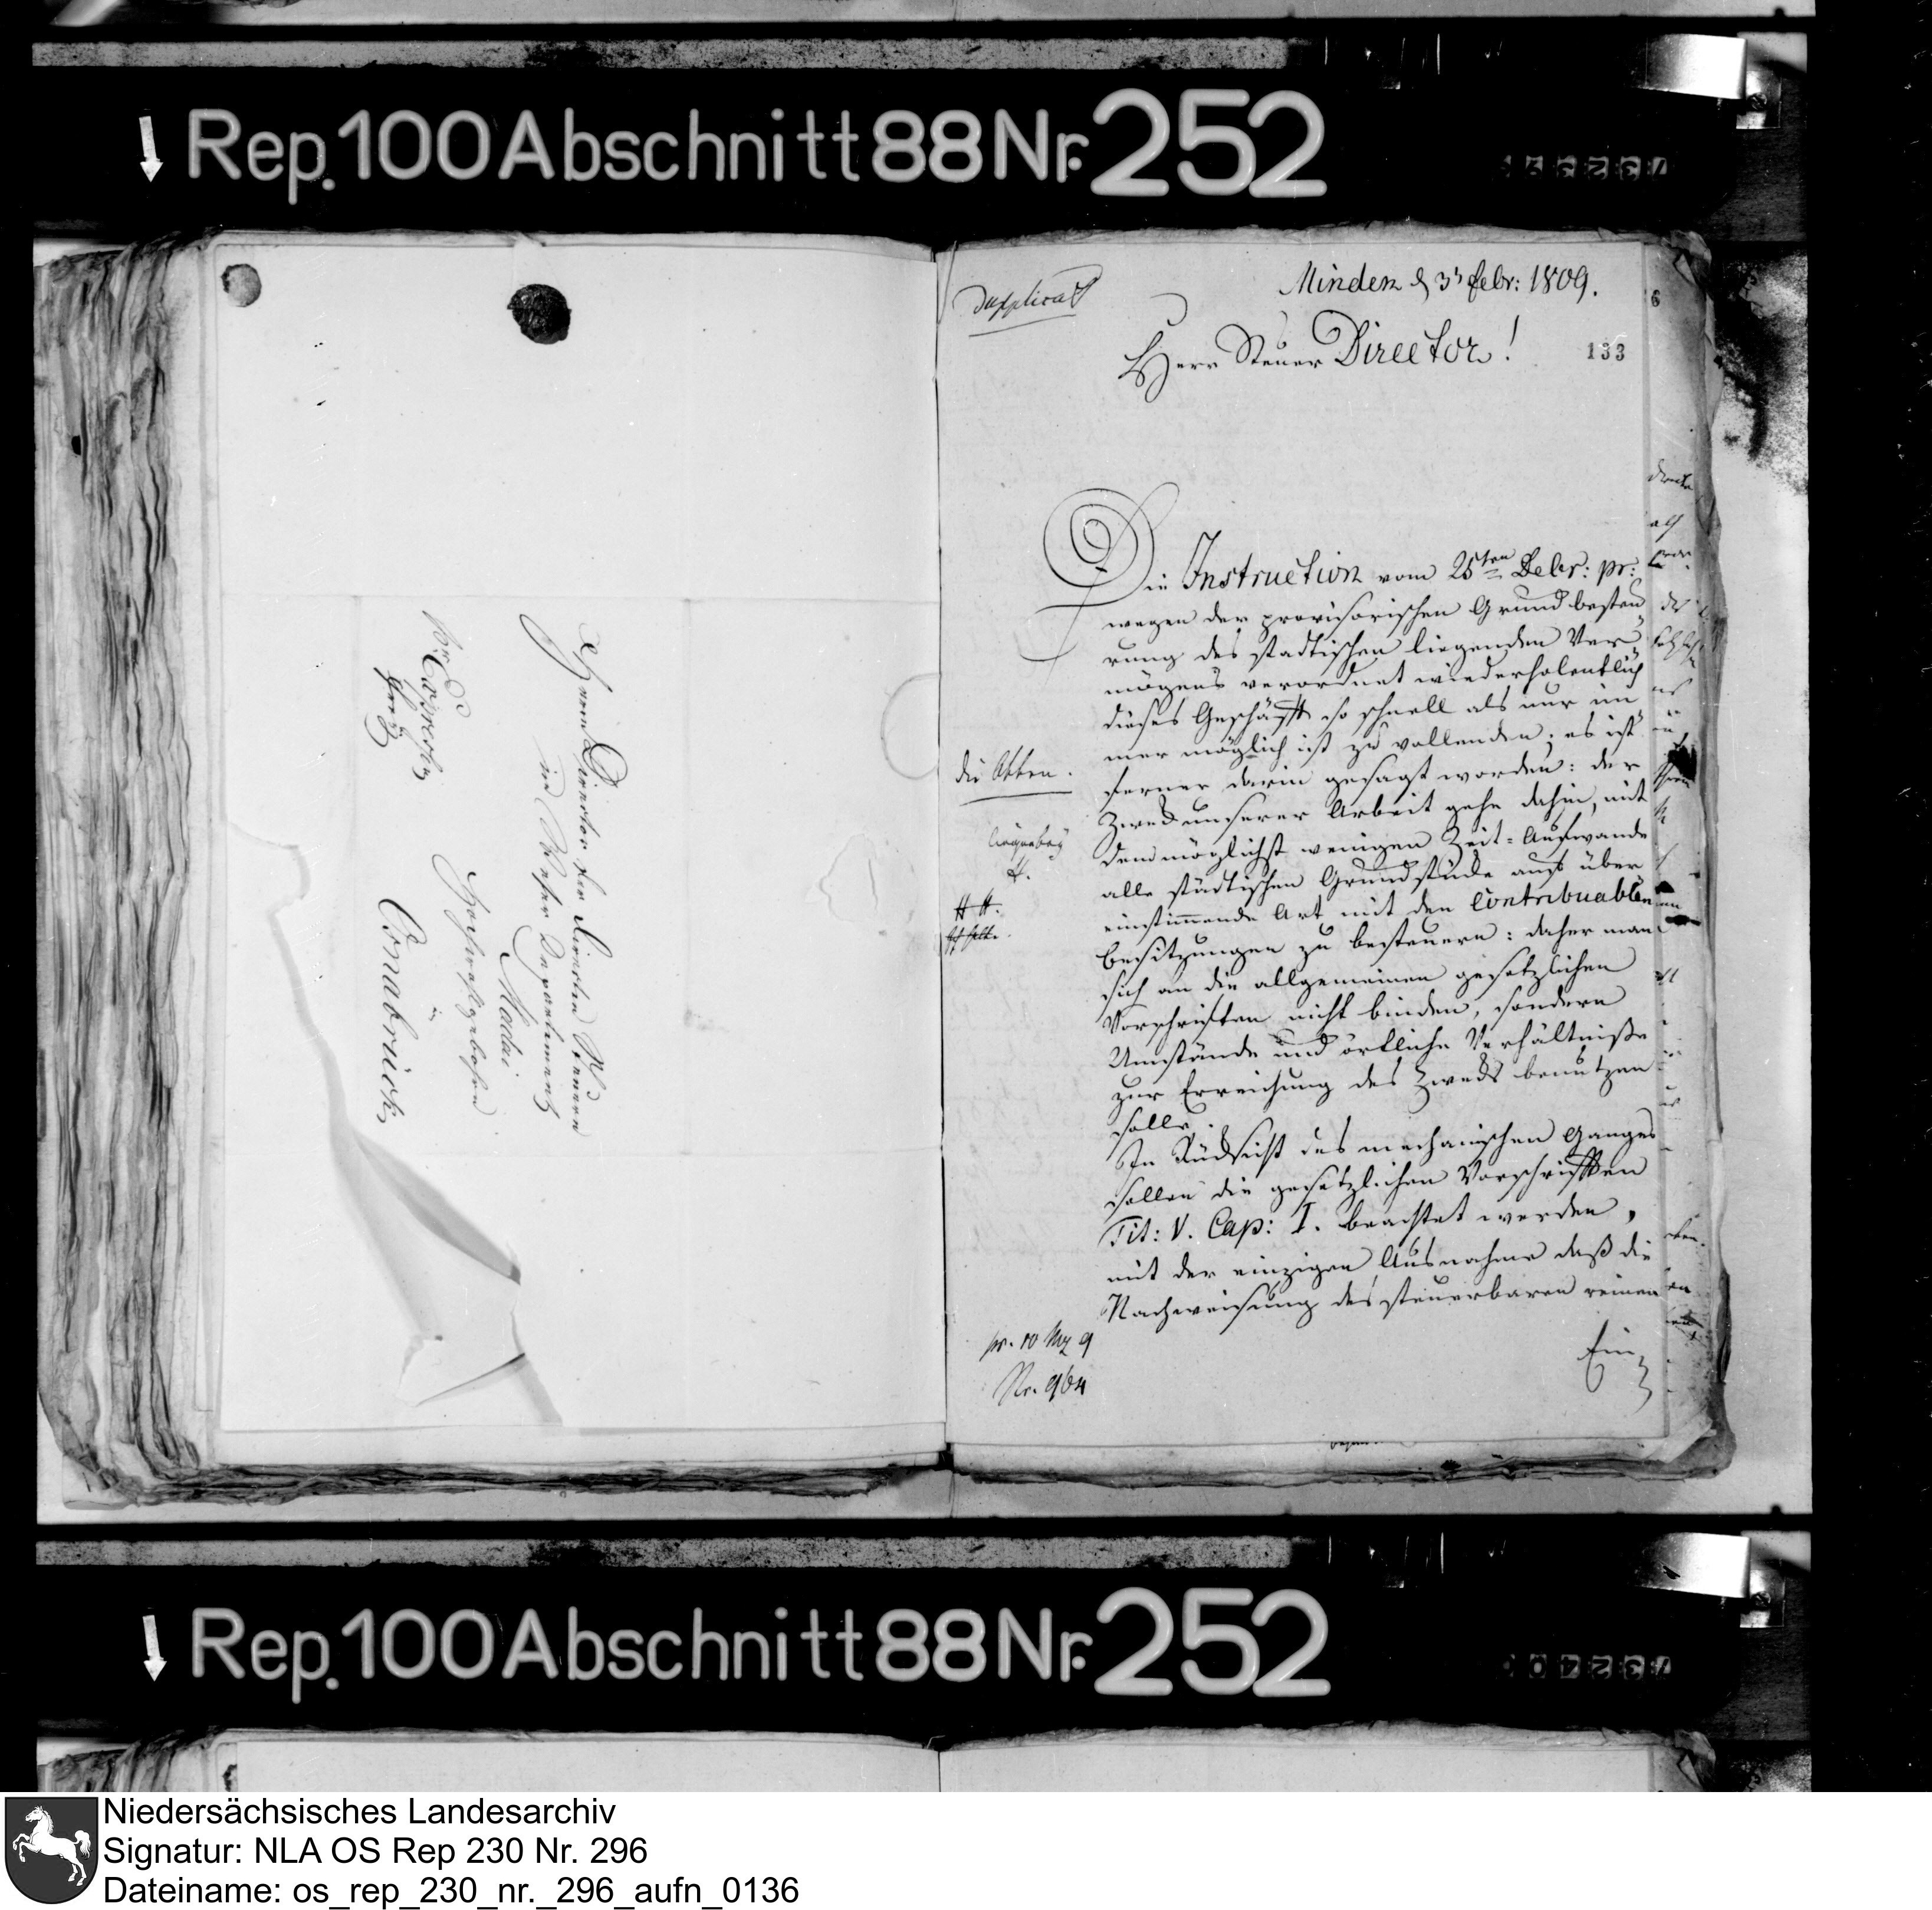 Rep. 100 Abschnitt 88 Nr. 252
Herrn Director der Directen Steuern
im Weser Departement
Modai
Hochwohlgebohren
in
Osnabrück
Duplicat
Minden d 3n febr: 1809.
133
Herr Steuer Director!
Die Instruction vom 25ten Debr: pr:
wegen der provisorischen Grundbesteu
rung des stadtischen liegenden Ver„
mögens verordnet wiederholentlich
dieses Geschäfft so schnell als nur im„
mer möglich ist zu vollenden; es ist
ferner darin gesagt worden: der
Zweck unserer Arbeit gehe dahin, mit
dem möglichst wenigen Zeit-Aufwande
alle städtischen Grundstücke auf über
einstimmende Art mit den Contribuablen
Besitzungen zu besteuern: daher man
sich an die allgemeinen gesetzlichen
Vorschriften nicht binden, sondern
Umstände und örtliche Verhältniße
zur Erreichung des Zwecks benutzen
solle.
In Rücksicht des mechanischen Ganges
sollen die gesetzlichen Vorschrifften
Tit: V. Cap: I. beachtet werden,
mit der einzigen Ausnahme daß die
Nachweisung des steuerbaren reinen
Ein„
die Akten.
pr. 10 Mz 9
Nr. 964
Rep. 100 Abschnitt 88 Nr. 252
Niedersächsisches Landesarchiv
Signatur: NLA OS Rep 230 Nr. 296
Dateiname: os_rep_230_nr._296_aufn_0136